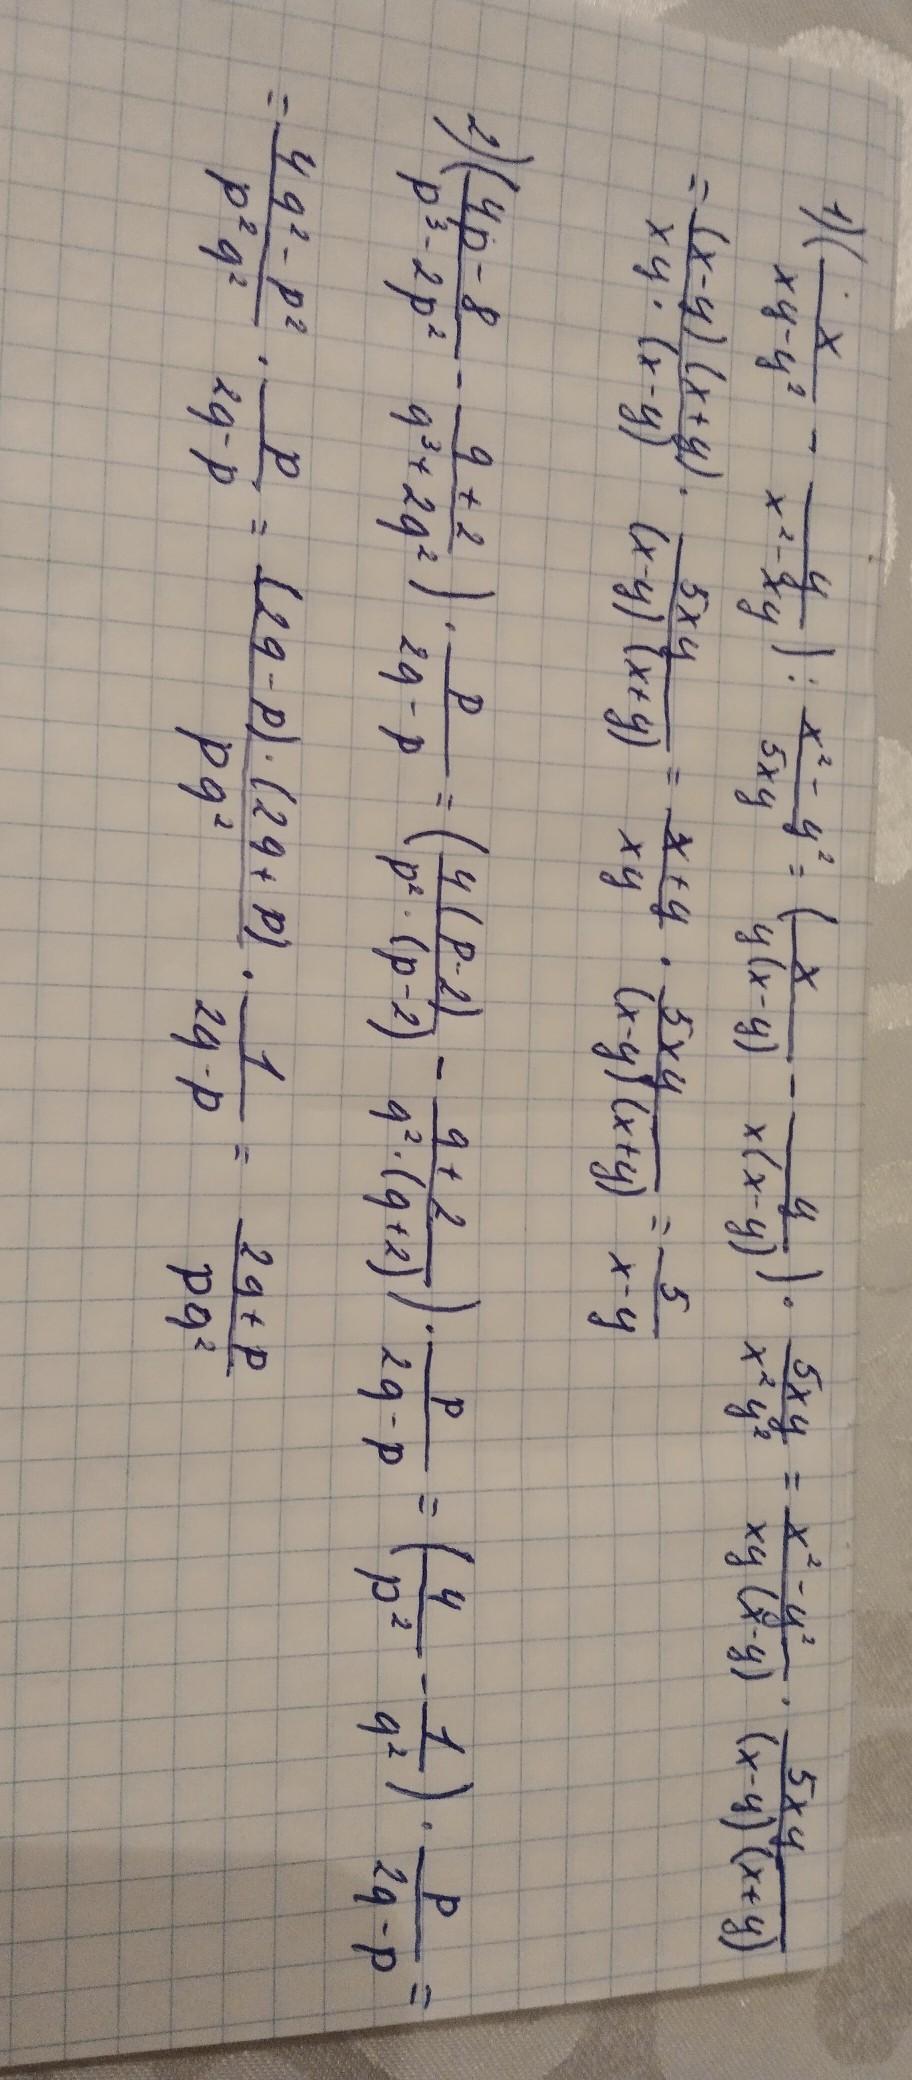 1) (x/(xy-y²) - y/(x²-xy)) : (x²-y²)/(5xy) = (x/(y(x-y)) - y/(x(x-y))) · 5xy/(x²y²) = (x²-y²)/(xy(x-y)) · 5xy/((x-y)(x+y))
= ((x-y)(x+y))/(xy·(x-y)) · 5xy/((x-y)(x+y)) = (x+y)/(xy) · 5xy/((x-y)(x+y)) = 5/(x-y)
2) ((4p-8)/(p³-2p²) - (q+2)/(q³+2q²)) · p/(2q-p) = (4(p-2)/(p²·(p-2)) - (q+2)/(q²·(q+2))) · p/(2q-p) = (4/p² - 1/q²) · p/(2q-p) =
= (4q²-p²)/(p²q²) · p/(2q-p) = ((2q-p)·(2q+p))/(pq²) · 1/(2q-p) = (2q+p)/(pq²)